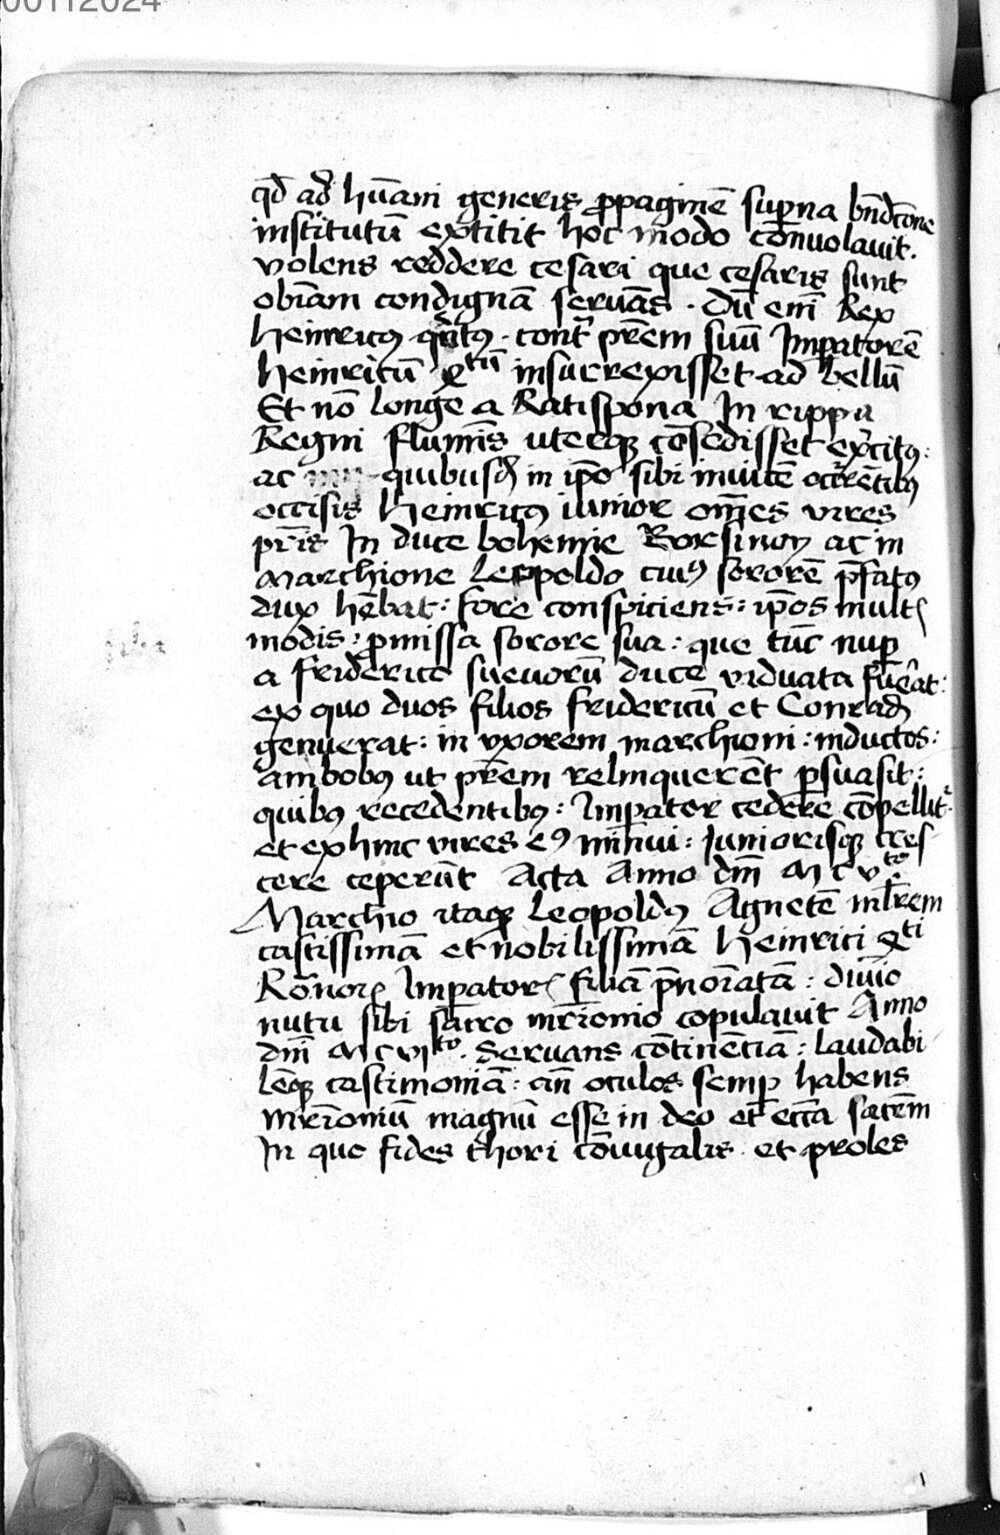 00112024
qd̄ ad hūani generis ꝓpaginē suꝑna bn̄dc̄one
institutū extitit hoc modo cōnuolauit.
volens reddere cesari que cesaris sunt
obīam condignā seruās . Dū em̄ Rex
Heinricꝰ qⁱntꝰ . contᵃ pr̄em suū Imꝑatorē
Heinricū qᵗū insurrexisset ad bellū
Et nō longe a Ratispona In rippa
Regni flumīs uterqꝫ cōsedisset exꝰcitꝰ :
ac quibusd̄ in ip̄o sibi inuicē occrrētibꝰ
occisis Heinricꝰ iunior om̄es vires
pr̄is In duce bohemie Borsinoy ac in
Marchione Leopoldo cuiꝰ sororē p̄fatꝰ
dux hēbat : fore conspiciens : ip̄os multꝭ
modis : ꝓmissa sorore sua : que tūc nuꝑ
a friderico sueuorū duce viduata fūat :
ex quo duos filios fridericū et Conrad̄
genuerat : in vxorem marchioni : inductos :
ambobꝰ ut pr̄em relinquerēt ꝑsuasit :
quibꝰ recedentibꝰ : Imꝑator cedere cōpellitᵣ
et exhinc vires eꝰ minui : Iuniorisqꝫ cres
cere ceperūt Acta Anno dn̄i M c vᵗᵒ
Marchio itaqꝫ Leopoldꝰ Agnetē ml̄rem
castissimā et nobilissimā Heinrici qᵗⁱ
Rōnorꝝ Imꝑatorꝭ filiā p̄noīatā : diuīo
nutu sibi sacro mr̄ionio copulauit Anno
dn̄i M c viᵗᵒ . Seruans cōtinēciā : laudabi
lēqꝫ castimoniā : cm̄ oculos semꝑ habens
mr̄ioniū magnū esse in deo et ecc̄a sacrm̄
In quo fides thori cōiugalis . et proles